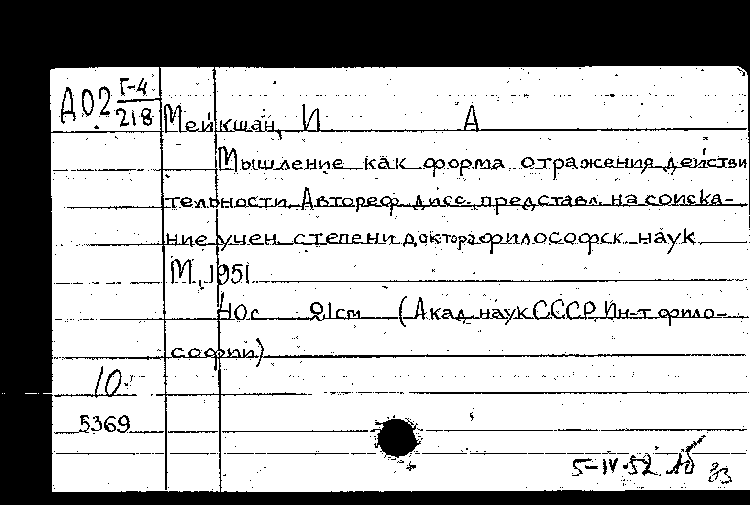 А02 Г-4
218
Мейкшан, И А
Мышление как форма отражения действи
тельности. Автореф. дисс. представл. на соиска-
ние учен. степени доктора философск. наук
М., 1951
40с 21см (Акад. наук СССР. Ин-т фило-
софии)
10
5369
5-IV-52